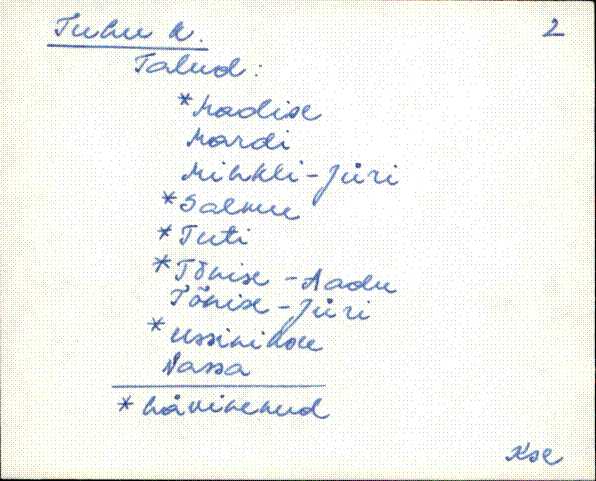 Tuhu k. 2
Talud:
*Madise
Mardi
Mihkli-Jüri
*Salmu
*Tuti
*Tõnise-Aadu
Tõnise-Jüri
*Ussinihou
Vassa
*hävinenud
Kse